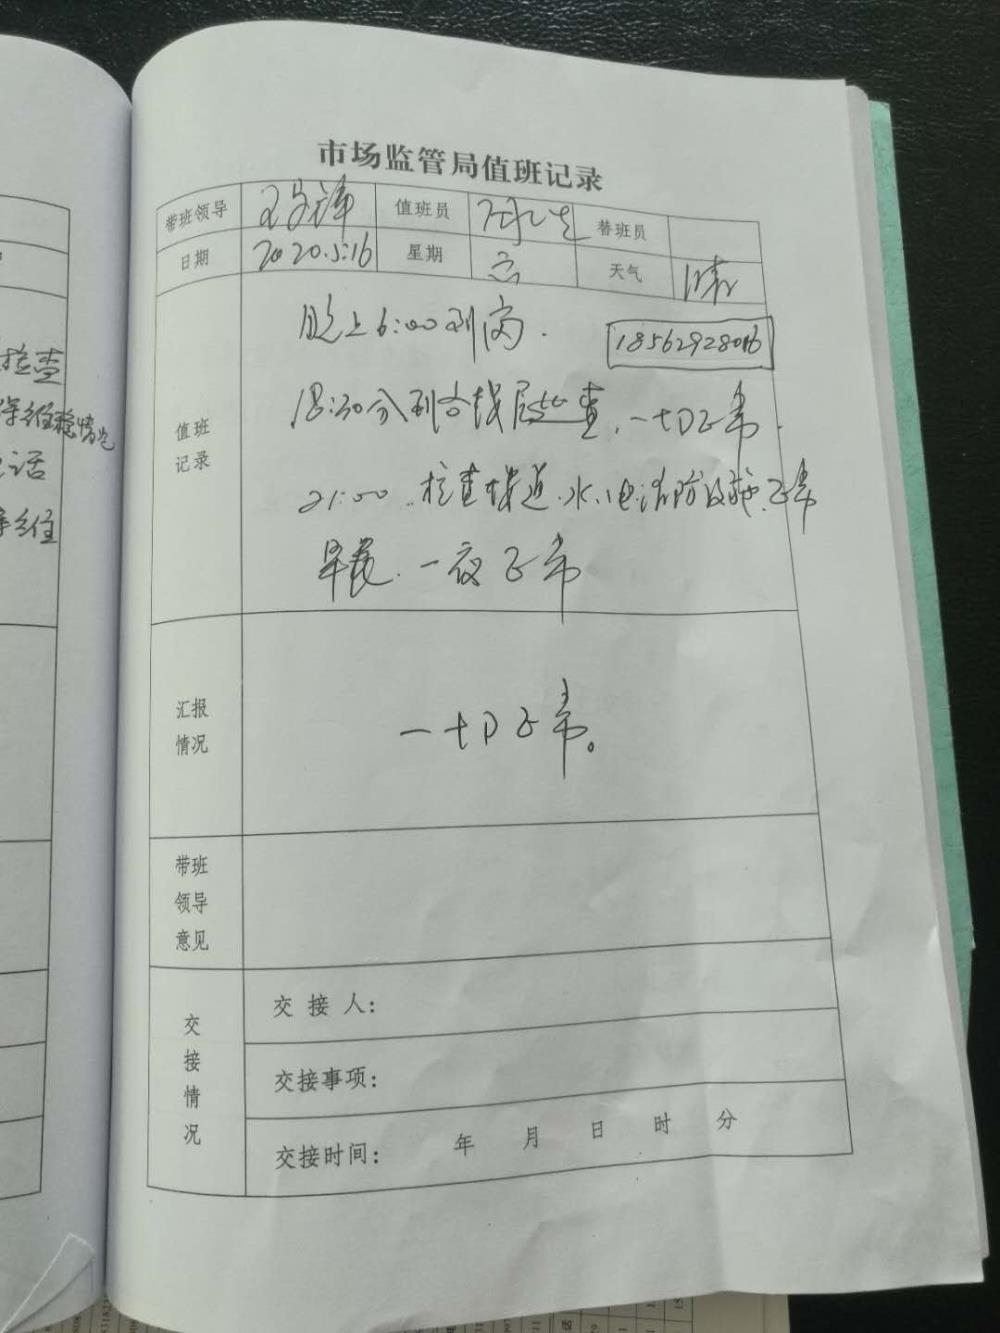 市场监管局值班记录
带班领导 值班员 替班员
日期 2020.5.16 星期 六 天气 晴
值班记录
晚上6:00到岗.
18562928016
18:30分到各楼层检查,一切正常.
21:00 检查楼道.水.电消防设施.正常
早晨.一夜正常
汇报情况
一切正常。
带班领导意见
交接情况
交接人:
交接事项:
交接时间: 年 月 日 时 分
检查
情况
话